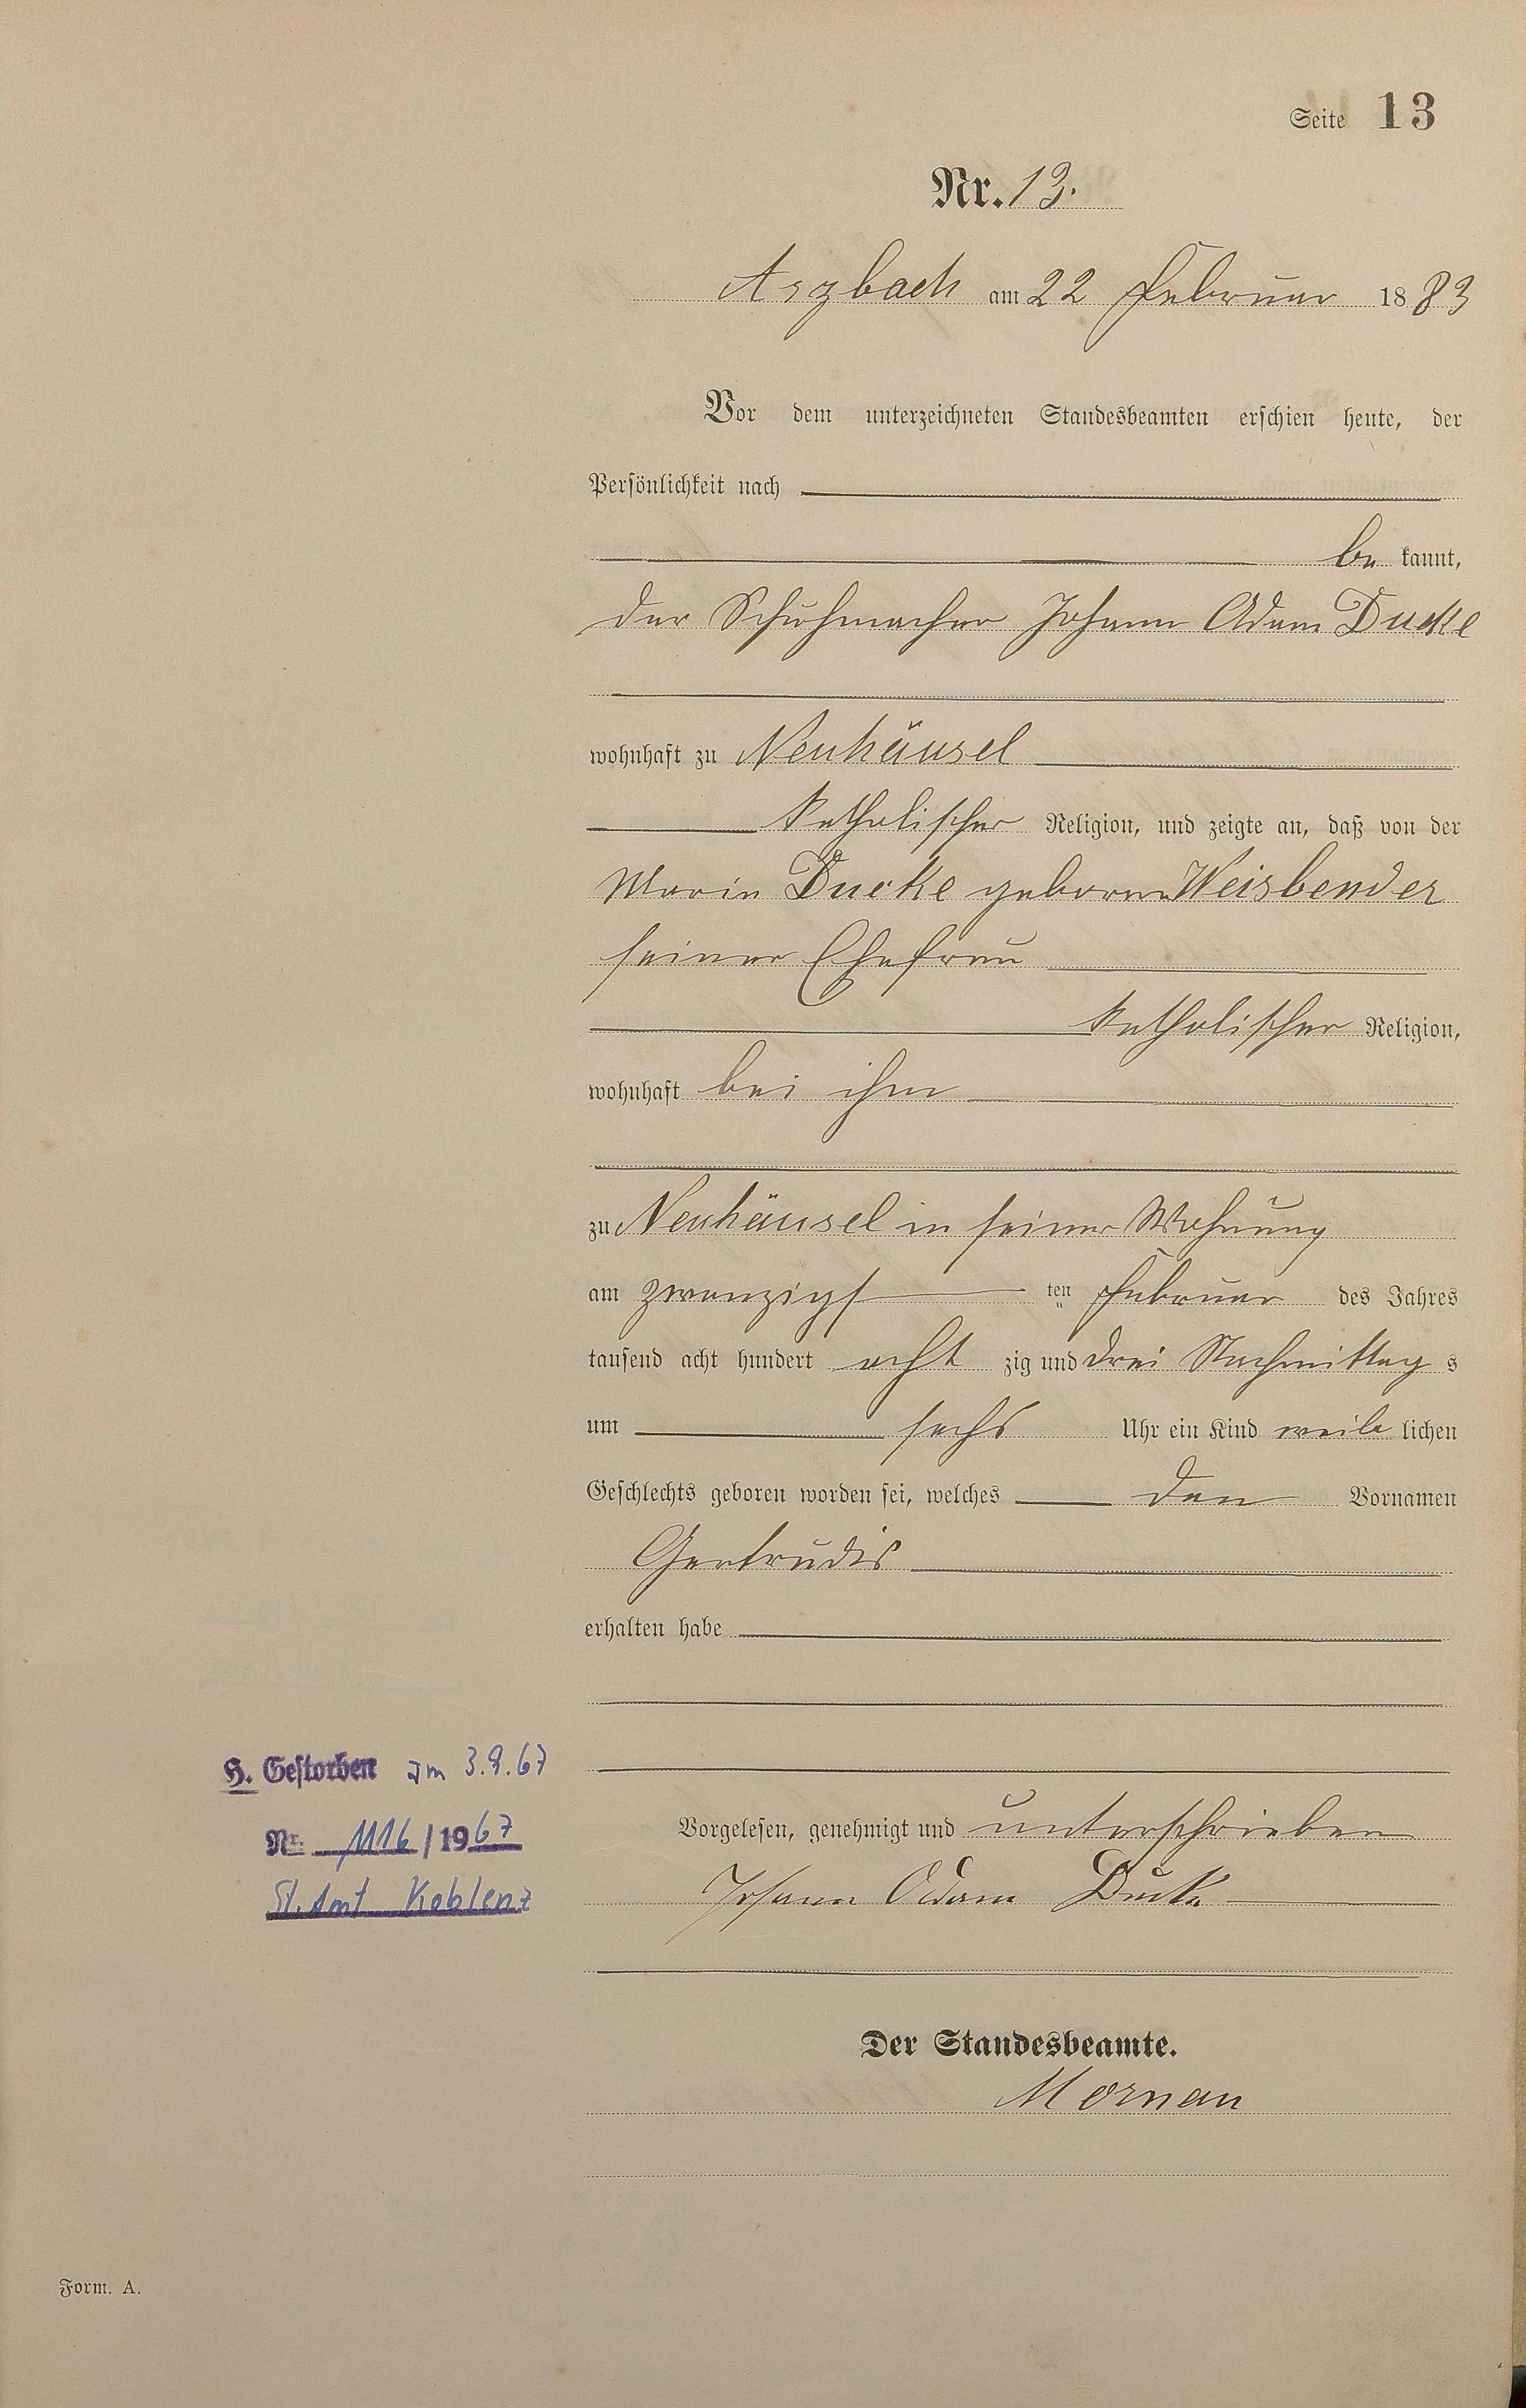 Seite 13
Nr. 13.
Arzbach am 22 Februar 1883
Vor dem unterzeichneten Standesbeamten erschien heute, der
Persönlichkeit nach
be kannt,
der Schuhmacher Johann Adam Ducke
wohnhaft zu Neuhäusel
katholischer Religion, und zeigte an, daß von der
Maria Ducke geborene Weisbender
seiner Ehefrau
katholischer Religion,
wohnhaft bei ihm
zu Neuhäusel in seiner Wohnung
am zwanzigs ten Februar des Jahres
tausend acht hundert acht zig und drei Nachmittag s
um sechs Uhr ein Kind weib lichen
Geschlechts geboren worden sei, welches den Vornamen
Gertrudis
erhalten habe
H. Gestorben am 3.9.67
Nr. 1116/1967
St. Amt Koblenz
Vorgelesen, genehmigt und unterschrieben
Johann Adam Ducke
Der Standesbeamte.
Form. A.